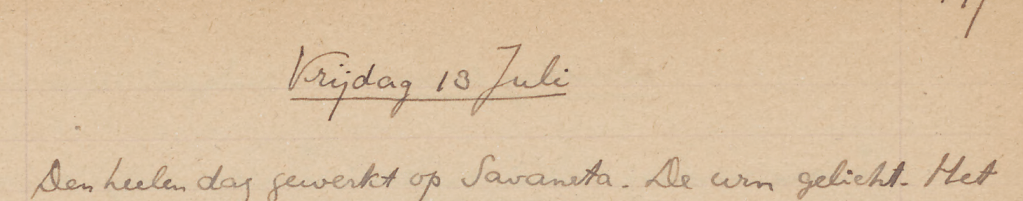 Vrijdag 13 Juli
Den heelen dag gewerkt op Savaneta. De urn gelicht. Het